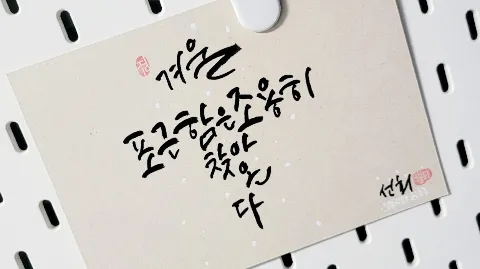 겨울
포근함은 조용히
찾아
온
다
선희